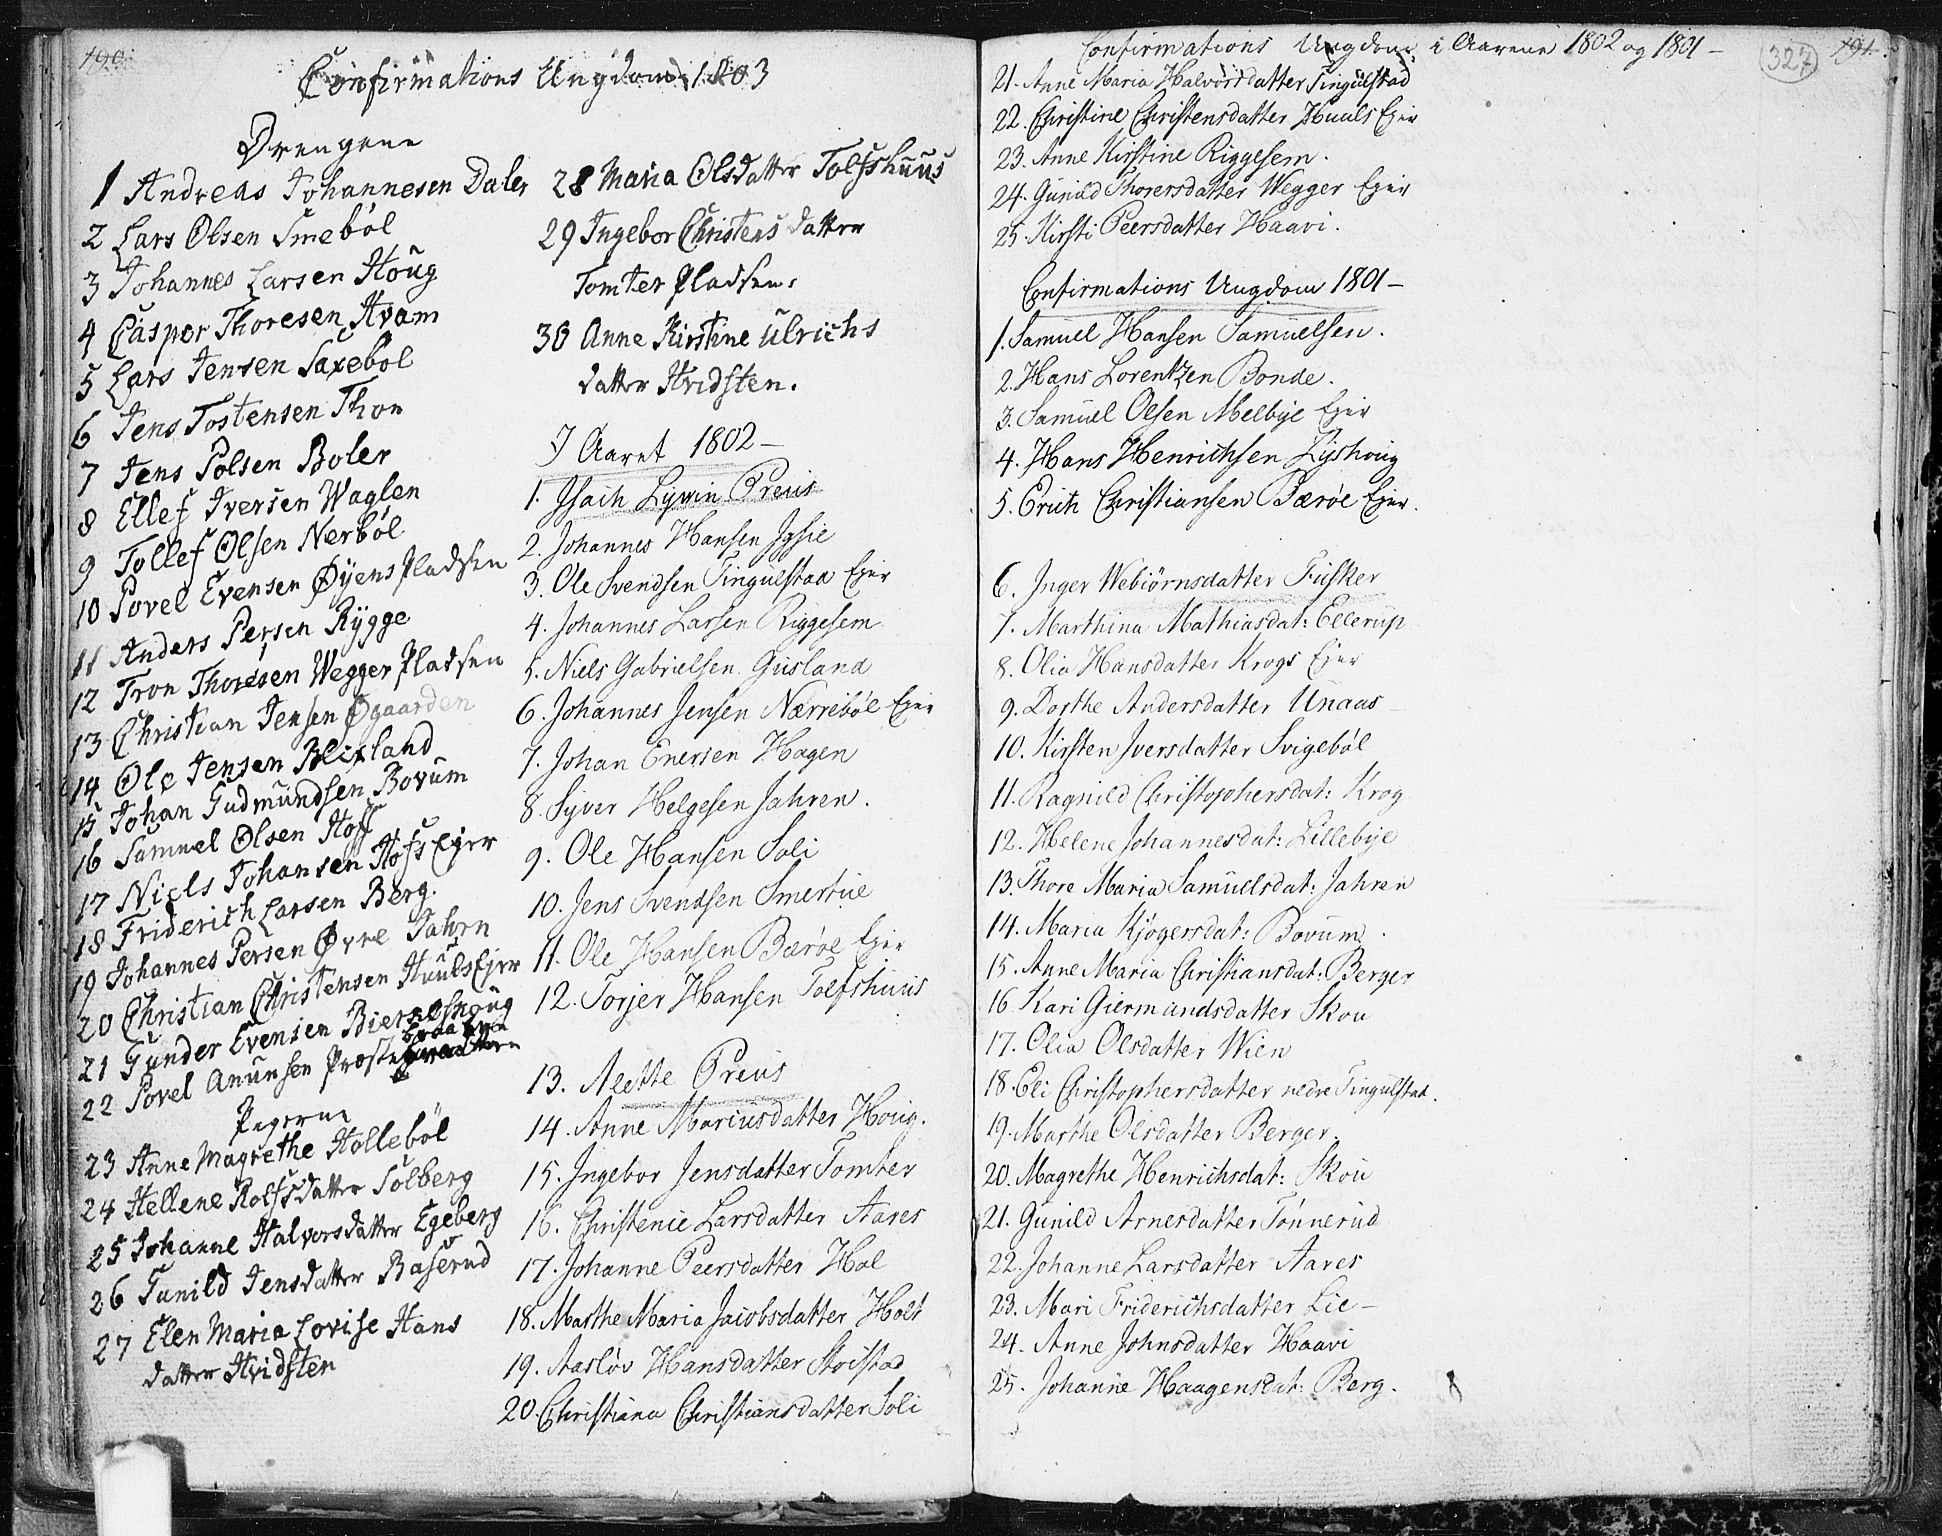 190.
Confirmations Ungdom 1803
Drengene
1 Andreas Johannesen Daler
2 Lars Olsen Smebøl
3 Johannes Larsen Houg
4 Casper Thoresen Hvam
5 Lars Jensen Saxebøl
6 Jens Tostensen Thon
7 Jens Polsen Boler
8 Ellef Iversen Waglen
9 Tollef Olsen Nerbøl
10 Povel Evensen Øyens Pladsen
11 Anders Persen Rygge
12 Tron Thoresen Wegger Pladsen
13 Christian Jensen Øgaarden
14 Ole Jensen Blixland
15 Johan Gudmundsen Bovum
16 Samuel Olsen Hoff
17 Niels Johansen Hofs Ejer
18 Friderich Larsen Berg.
19 Johannes Persen Øvre Jahrn
20 Christian Christensen Huuls Ejer
21 Gunder Evensen Bierneskoug
22 Povel Anunsen Præste
Pigerne
23 Anne Magrethe Hollebøl
24 Hellene Rolfsdatter Solberg
25 Johanne Halvorsdatter Egeberg
26 Gunild Jensdatter Baserud
27 Elen Maria Lovise Hans
datter Hvidsten
28 Maria Olsdatter Tolfshuus
29 Ingebor Christens datter
Tomter Pladsen.
30 Anne Kirstine Ulrichs
datter Hvidsten.
I Aaret 1802 –
1. Isach Lywin Preus
2. Johannes Hansen Igsie
3. Ole Svendsen Tingulstad Ejer
4. Johannes Larsen Riggesem
5. Niels Gabrielsen Gusland
6. Johannes Jensen Nærrebøl Ejer
7. Johan Enersen Hagen
8. Syver Helgesen Jahren.
9. Ole Hansen Soli
10. Jens Svendsen Smertue
11. Ole Hansen Bærøe Ejer
12. Torjer Hansen Tolfshuus
13. Alette Preus
14. Anne Mariusdatter Houg.
15. Ingebor Jensdatter Tomter
16. Christenie Larsdatter Aares
17. Johanne Peersdatter Hol
18. Marthe Maria Jacobsdatter Holt
19. Aasløv Hansdatter Stoistad
20. Christiana Christiansdatter Soli
Confirmations Ungdom i Aarene 1802 og 1801 –
327
191.
21. Anne Maria Halvorsdatter Tingulstad
22. Christine Christensdatter Huuls Ejer
23. Anne Kirstine Riggesem.
24. Gunild Thorersdatter Wegger Ejer
25. Kirsti Peersdatter Haavi.
Confirmations Ungdom 1801 –
1. Samuel Hansen Samuelsen.
2. Hans Lorentzen Bonde.
3. Samuel Olsen Melbye Ejer
4. Hans Henrichsen Lyshoug
5. Erich Christiansen Bærøe Ejer.
6. Inger Webiørnsdatter Fusker
7. Marthina Mathiasdat: Ellerup
8. Olia Hansdatter Krogs Ejer
9. Dorthe Andersdatter Unaas –
10. Kirsten Iversdatter Svigebøl
11. Ragnild Christophersdat: Krog
12. Helene Johannesdat: Lillebye
13. Thore Maria Samuelsdat: Jahren
14. Maria Kjøgersdat: Bovum.
15. Anne Maria Christiansdat: Berger
16. Kari Giermundsdatter Skou
17. Olia Olsdatter Wien
18. Eli Christophersdatter nedre Tingulstad.
19. Marthe Olsdatter Berger
20. Magrethe Henrichsdat: Skou
21. Gunild Arnesdatter Tønnerud
22. Johanne Larsdatter Aares
23. Mari Friderichsdatter Lie –
24. Anne Johnsdatter Haavi
25. Johanne Haagensdat: Berg.